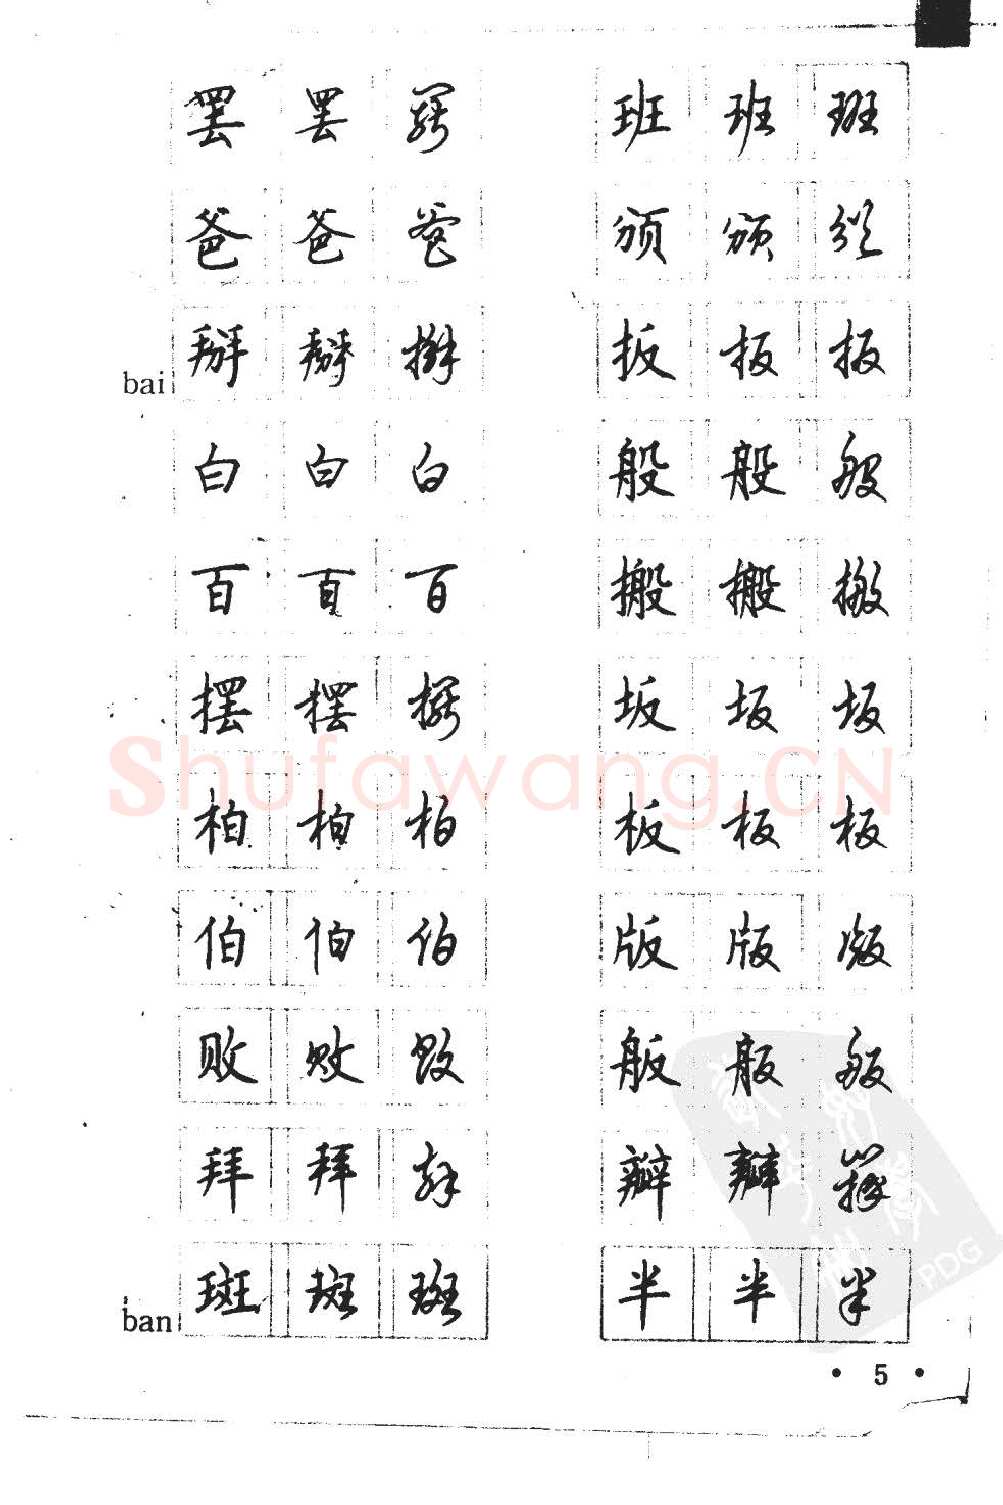 罢 罢 罢
爸 爸 爸
bai 掰 掰 掰
白 白 白
百 百 百
摆 摆 摆
柏 柏 柏
伯 伯 伯
败 败 败
拜 拜 拜
ban 斑 斑 斑
班 班 班
颁 颁 颁
扳 扳 扳
般 般 般
搬 搬 搬
坂 坂 坂
板 板 板
版 版 版
舨 舨 舨
瓣 瓣 瓣
半 半 半
• 5 •
Shufawang.CN
PDG